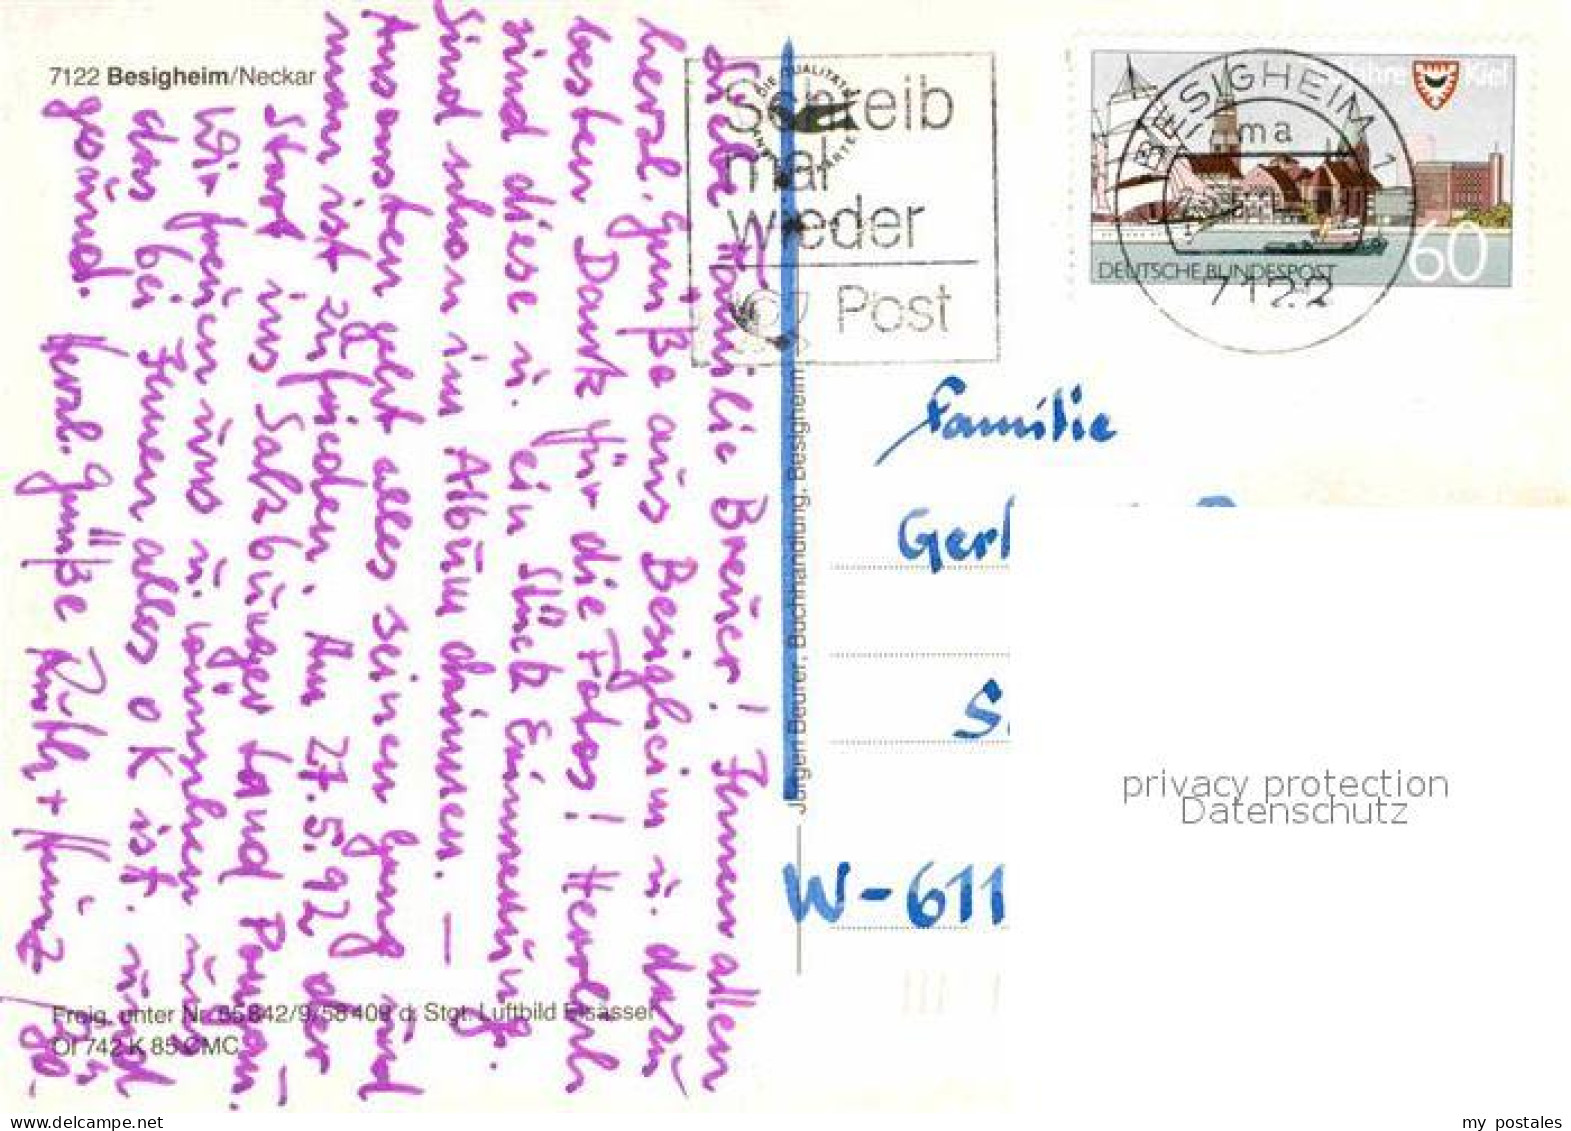 7122 Besigheim/Neckar
Liebe Familie Breuer! Ihnen allen
herzl. Grüße aus Besigheim u. dazu
besten Dank für die Fotos! Herrlich
sind diese u. ein Stück Erinnerung.
Sind schon im Album drinnen. —
Ansonsten geht alles seinen Gang und
man ist zufrieden. Am 27.5.92 der
Start ins Salzburger Land Pongau.
Wir freuen uns u. wünschen nur
das bei Ihnen alles OK ist. und
gesund. Herzl. Grüße Ruth + Heinz
Freig. unter Nr. 65842/9/58409 d. Stgt. Luftbild Elsässer
OI 742 K 85 CMC
Jürgen Beurer, Buchhandlung, Besigheim
DIE QUALITÄTS
KARTE
Schreib
mal
wieder
Post
Jahre Kiel
DEUTSCHE BUNDESPOST
60
BESIGHEIM 1
ma
7122
Familie
Gerh
S
W-611
privacy protection
Datenschutz
my postales